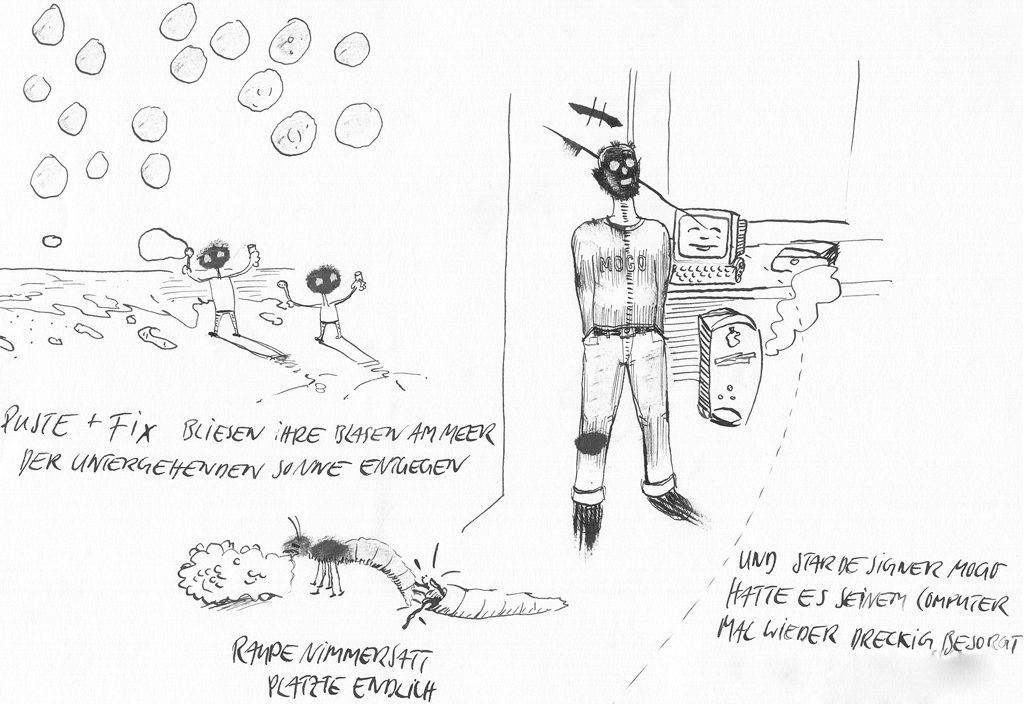 PUSTE + FIX BLIESEN IHRE BLASEN AM MEER
DER UNTERGEHENDEN SONNE ENTGEGEN
RAUPE NIMMERSATT
PLATZTE ENDLICH
MOGO
UND STARDESIGNER MOGO
HATTE ES SEINEM COMPUTER
MAL WIEDER DRECKIG BESORGT